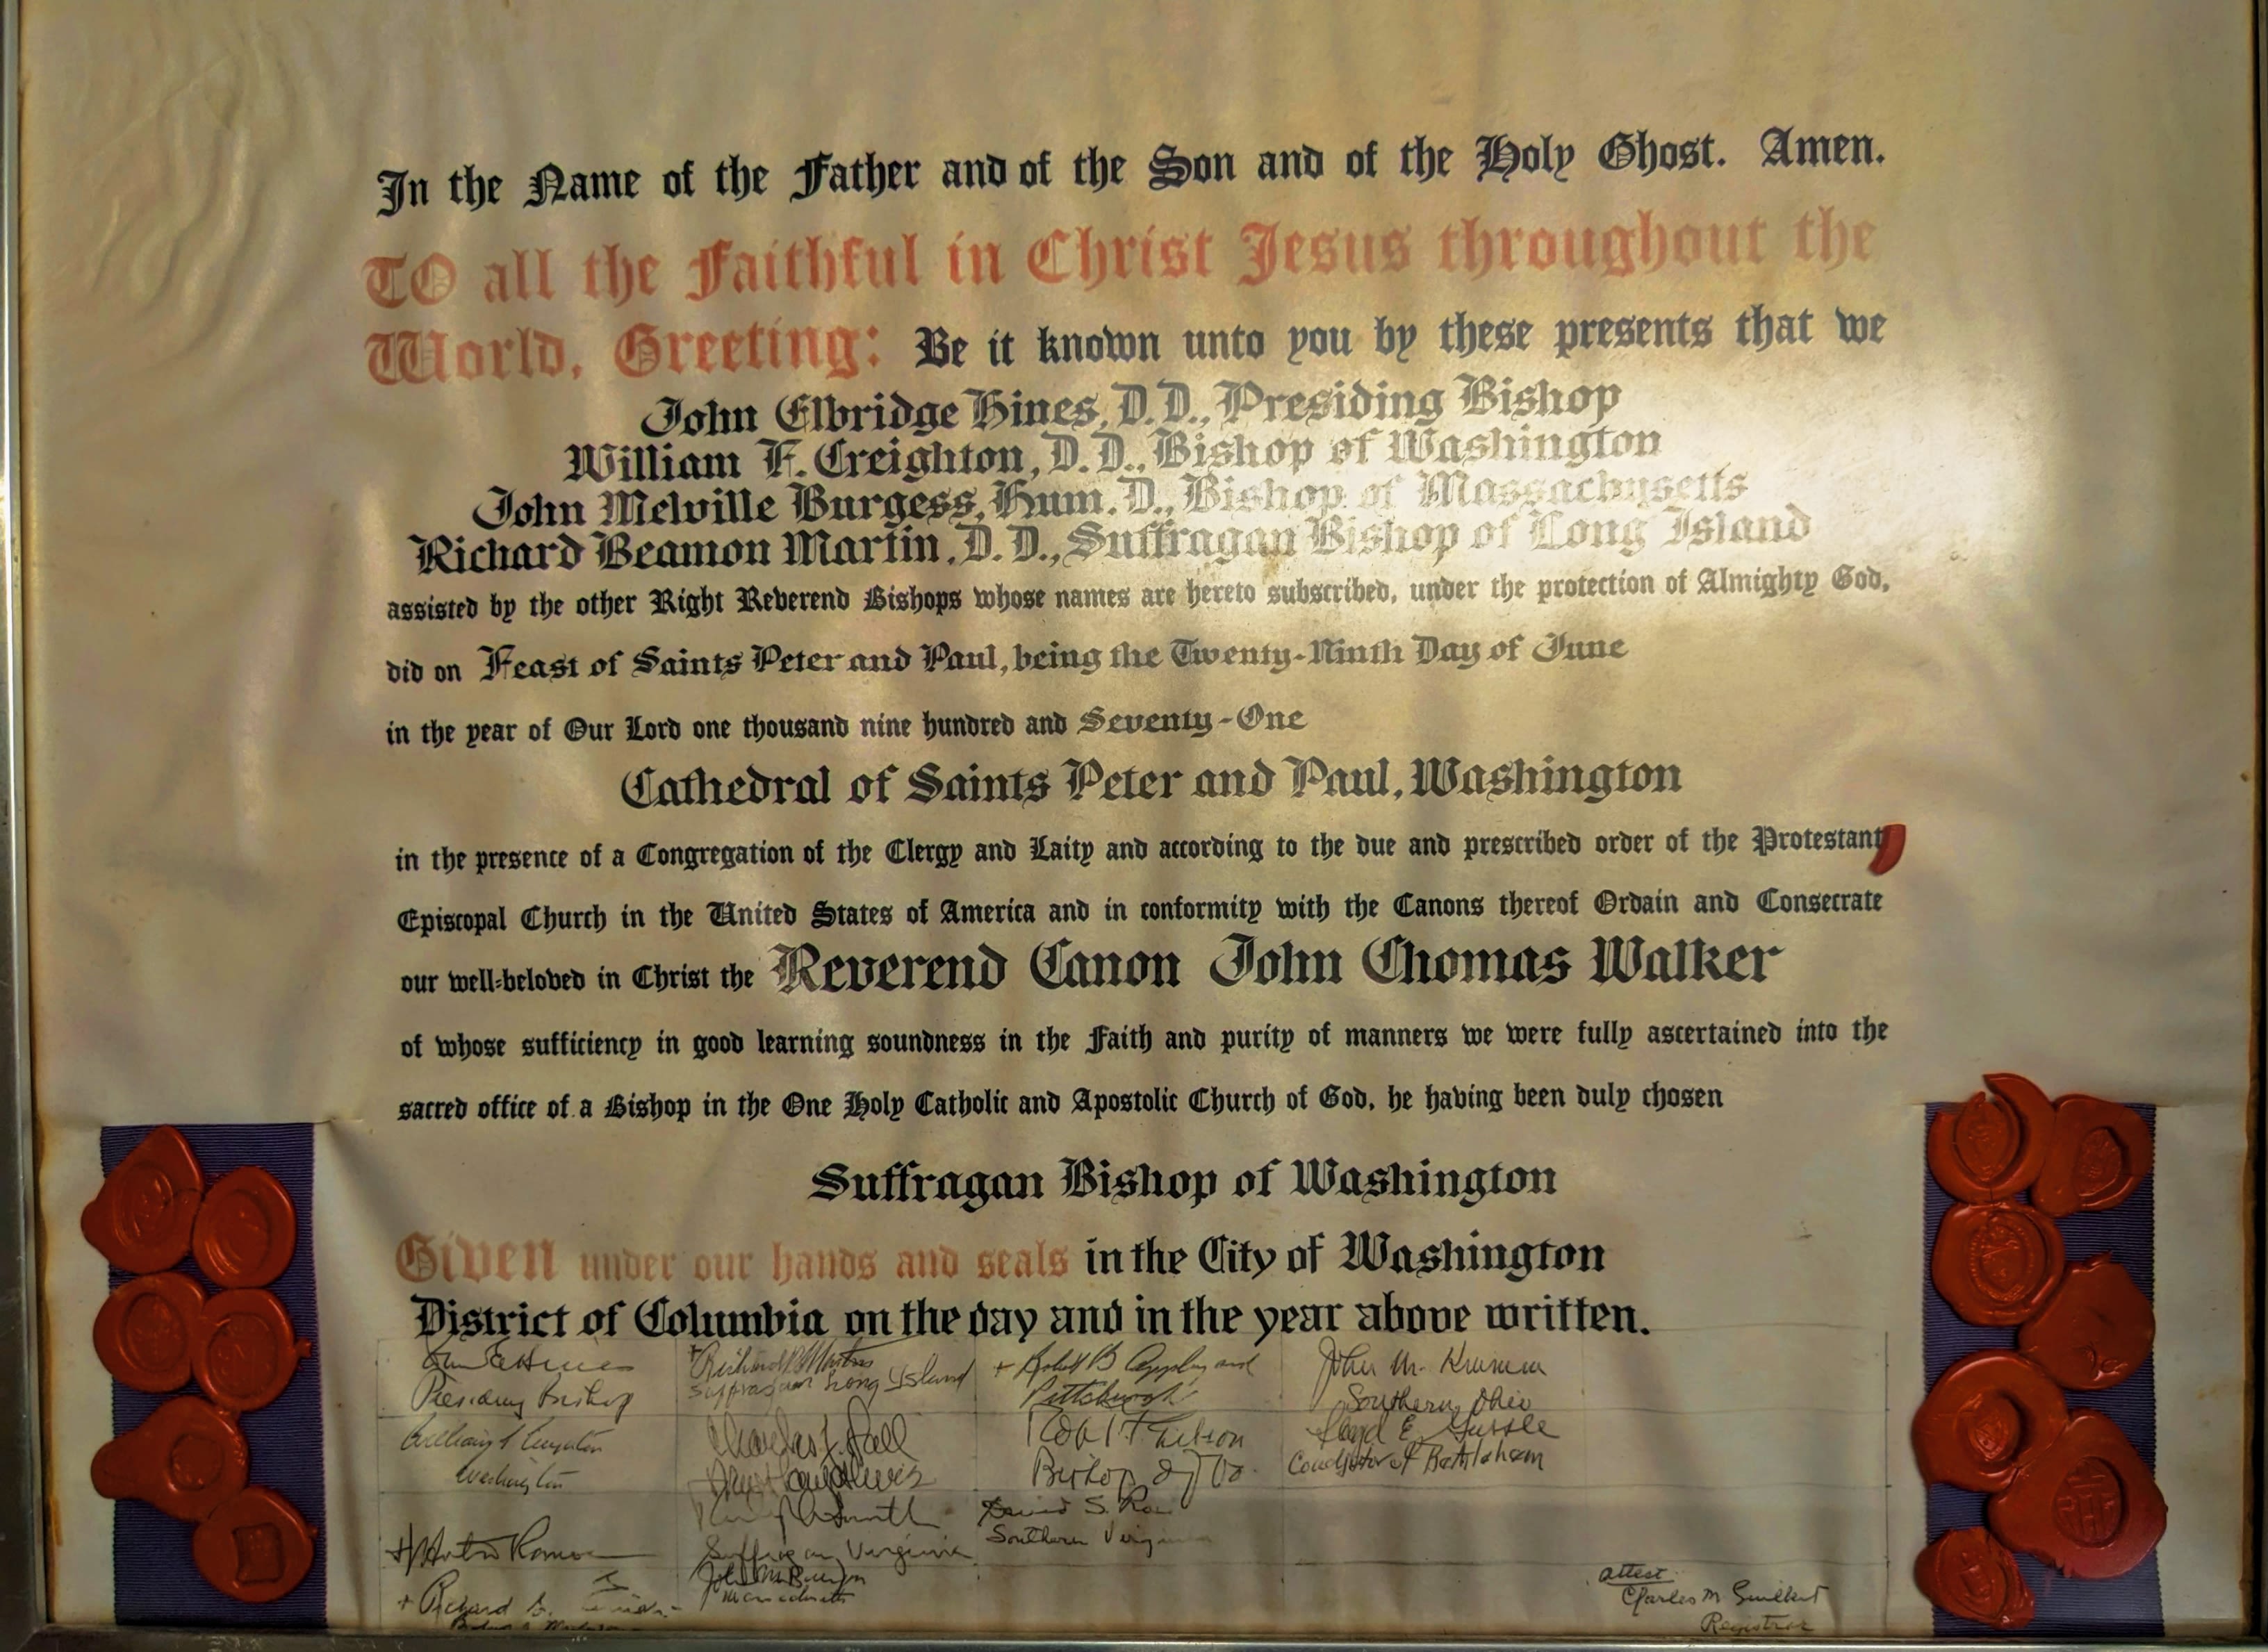 In the Name of the Father and of the Son and of the Holy Ghost. Amen.
TO all the Faithful in Christ Jesus throughout the
World, Greeting: Be it known unto you by these presents that we
John Elbridge Hines, D.D., Presiding Bishop
William F. Creighton, D.D., Bishop of Washington
John Melville Burgess, Hum. D., Bishop of Massachusetts
Richard Beamon Martin, D.D., Suffragan Bishop of Long Island
assisted by the other Right Reverend Bishops whose names are hereto subscribed, under the protection of Almighty God,
did on Feast of Saints Peter and Paul, being the Twenty-Ninth Day of June
in the year of Our Lord one thousand nine hundred and Seventy-One
Cathedral of Saints Peter and Paul, Washington
in the presence of a Congregation of the Clergy and Laity and according to the due and prescribed order of the Protestant
Episcopal Church in the United States of America and in conformity with the Canons thereof Ordain and Consecrate
our well-beloved in Christ the Reverend Canon John Thomas Walker
of whose sufficiency in good learning soundness in the Faith and purity of manners we were fully ascertained into the
sacred office of a Bishop in the One Holy Catholic and Apostolic Church of God, he having been duly chosen
Suffragan Bishop of Washington
Given under our hands and seals in the City of Washington
District of Columbia on the day and in the year above written.
Presiding Bishop
Washington
+ Richard
+ Richard B Martin
Suffragan Long Island
Charles
Smith
Suffragan Virginia
John M Burgess
Massachusetts
+ Robert B Appleyard
Pittsburgh
Bishop of Va.
David S. Rose
Southern Virginia
John M. Krumm
Southern Ohio
Lloyd E. Gressle
Coadjutor of Bethlehem
attest
Charles M. Guilbert
Registrar